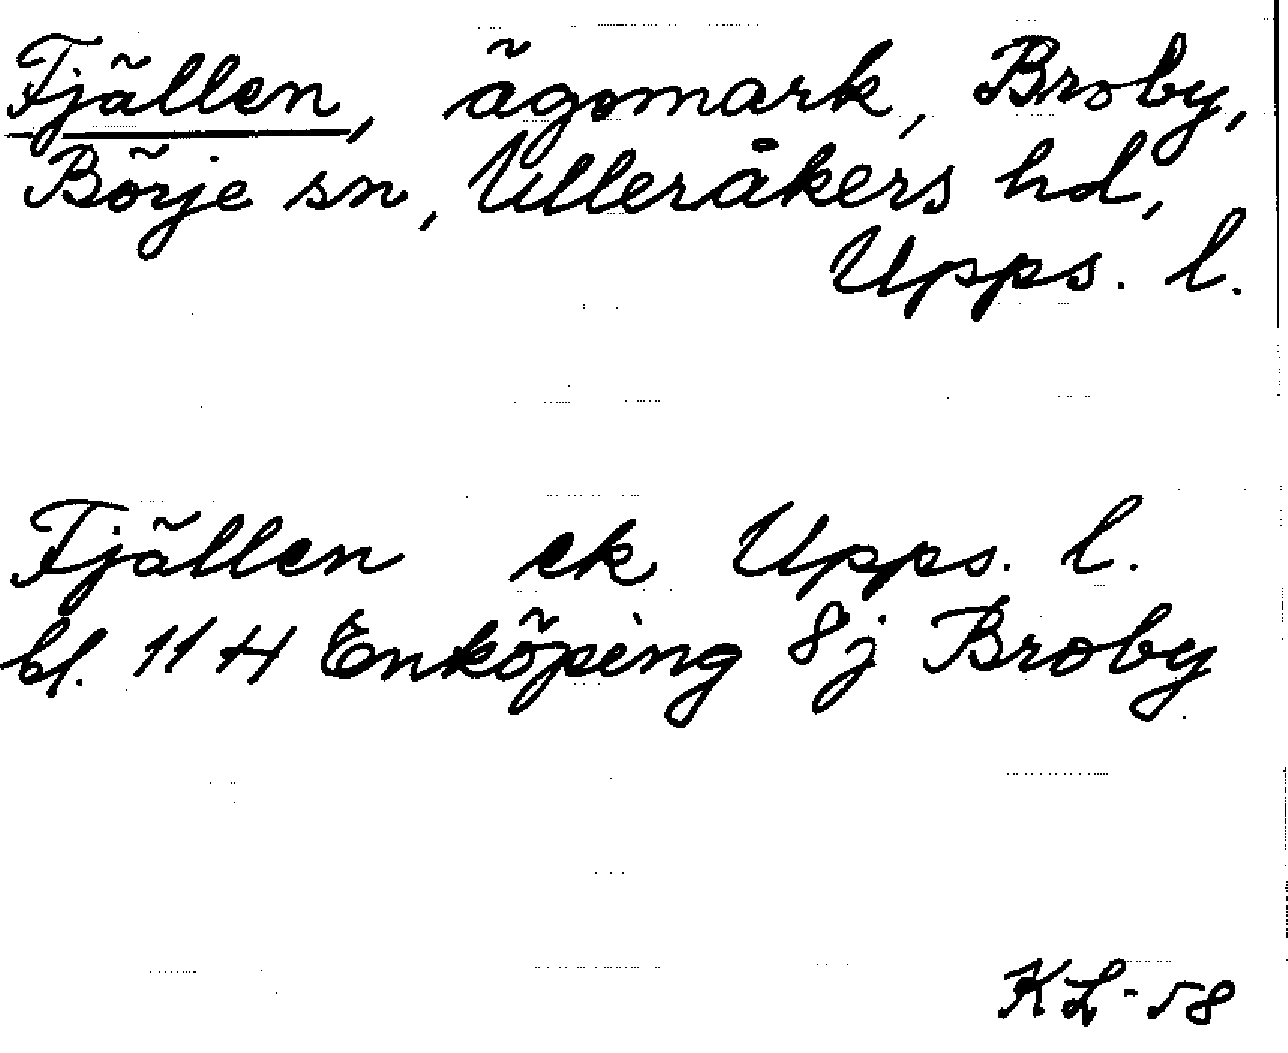 Fjällen, ägomark, Broby,
Börje sn, Ulleråkers hd,
Upps. l.
Fjällen ek Upps. l.
bl. 11 H Enköping 8j Broby
KL-58